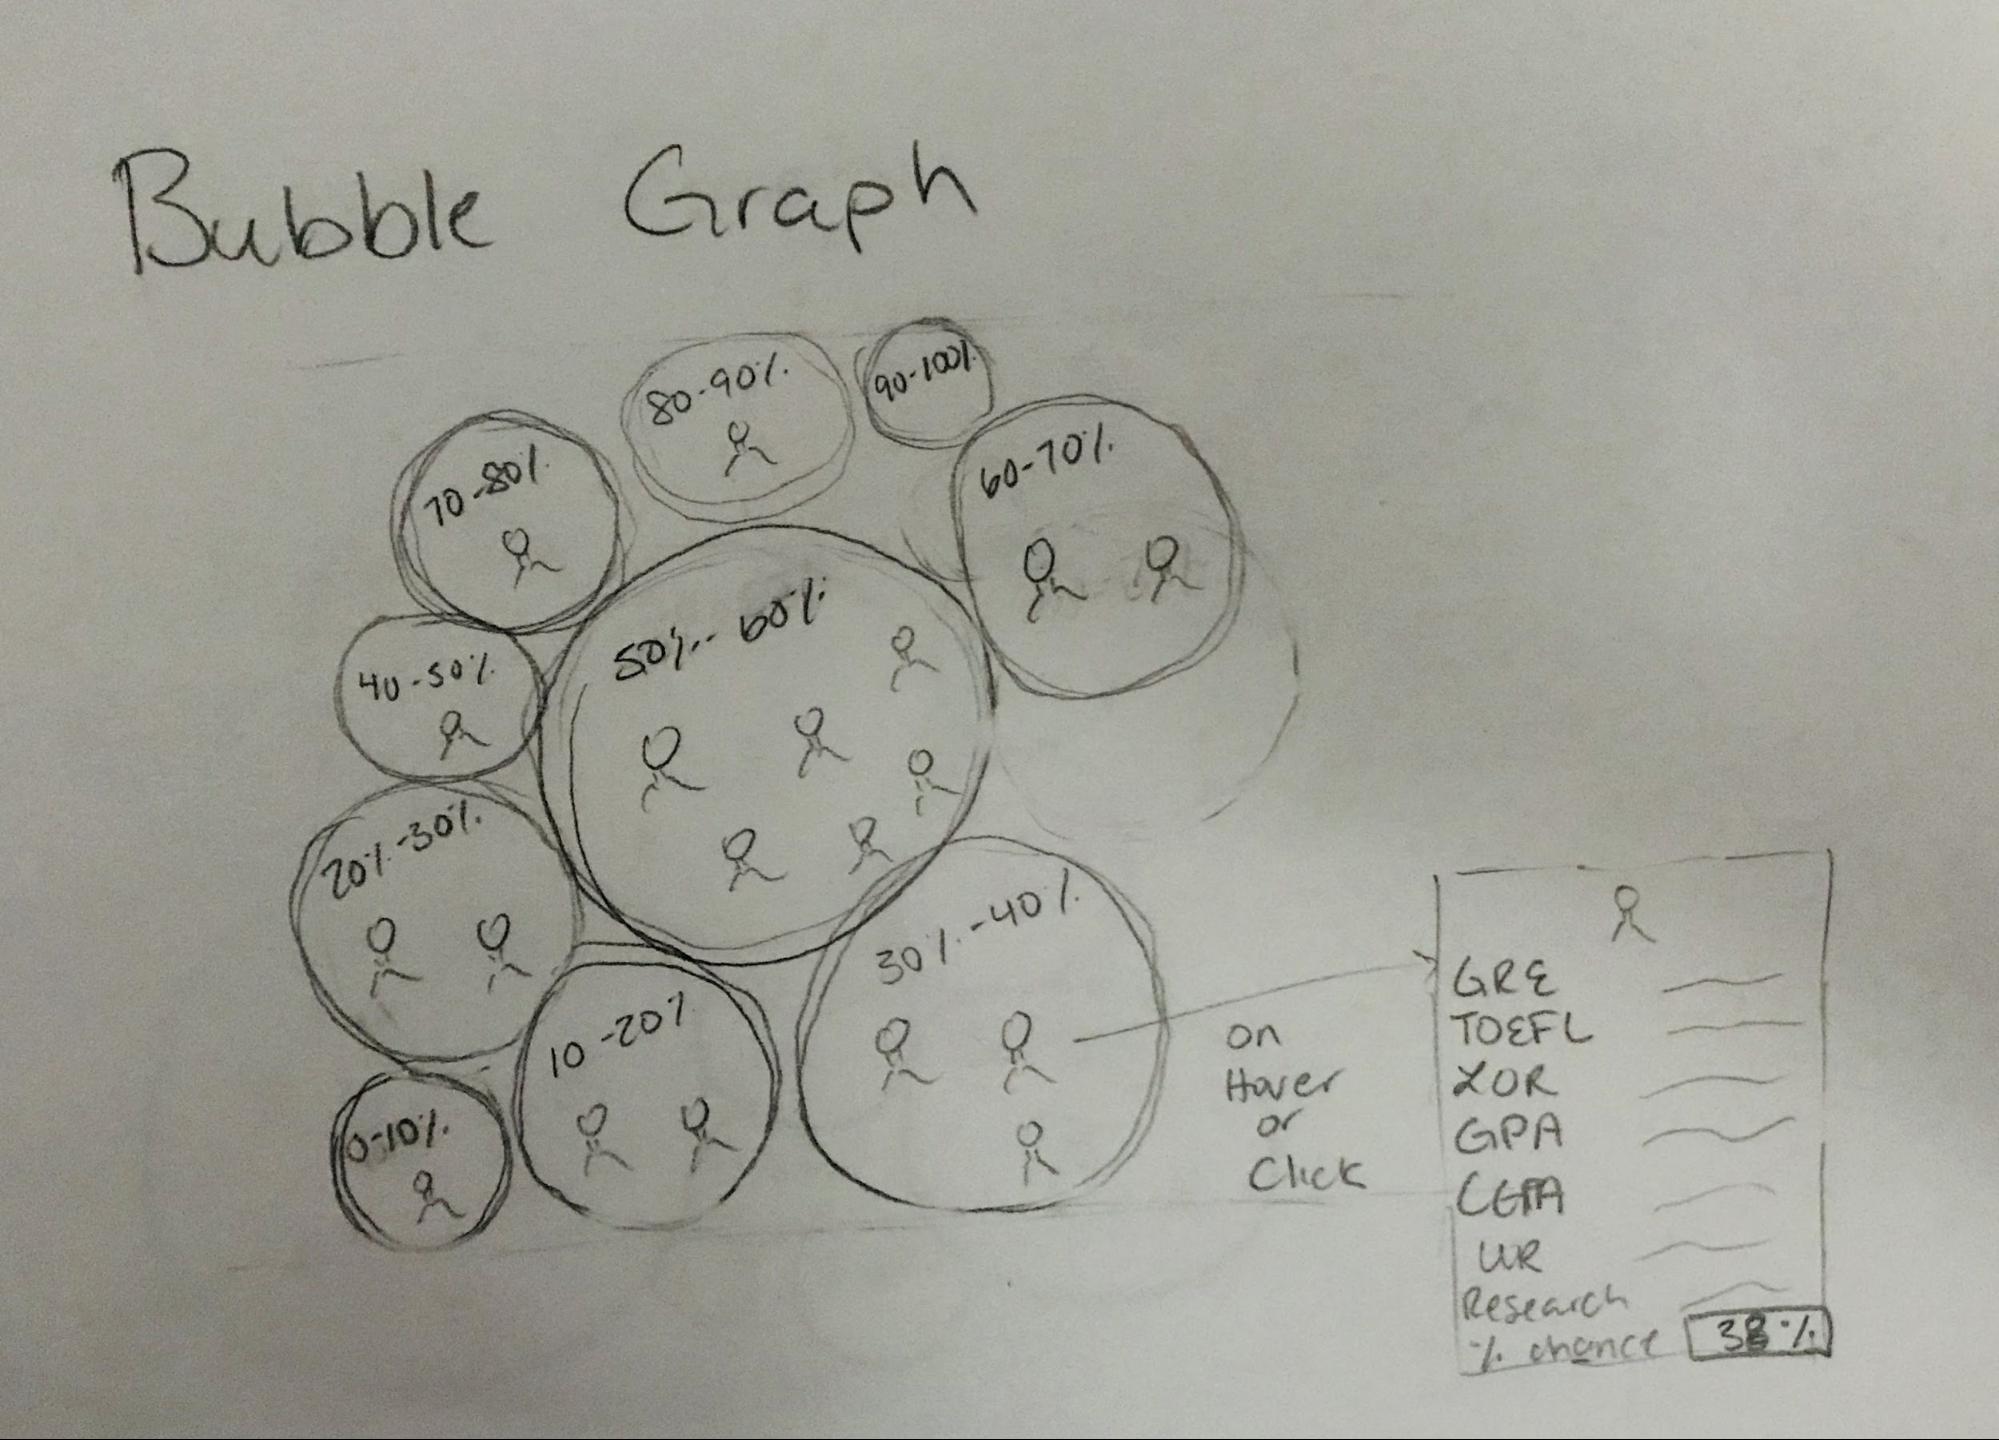 Bubble Graph
80-90%
90-100%
70-80%
60-70%
50%-60%
40-50%
20%-30%
30%-40%
10-20%
0-10%
on
Hover
or
Click
GRE
TOEFL
LOR
GPA
CGPA
UR
Research
% chance 38%